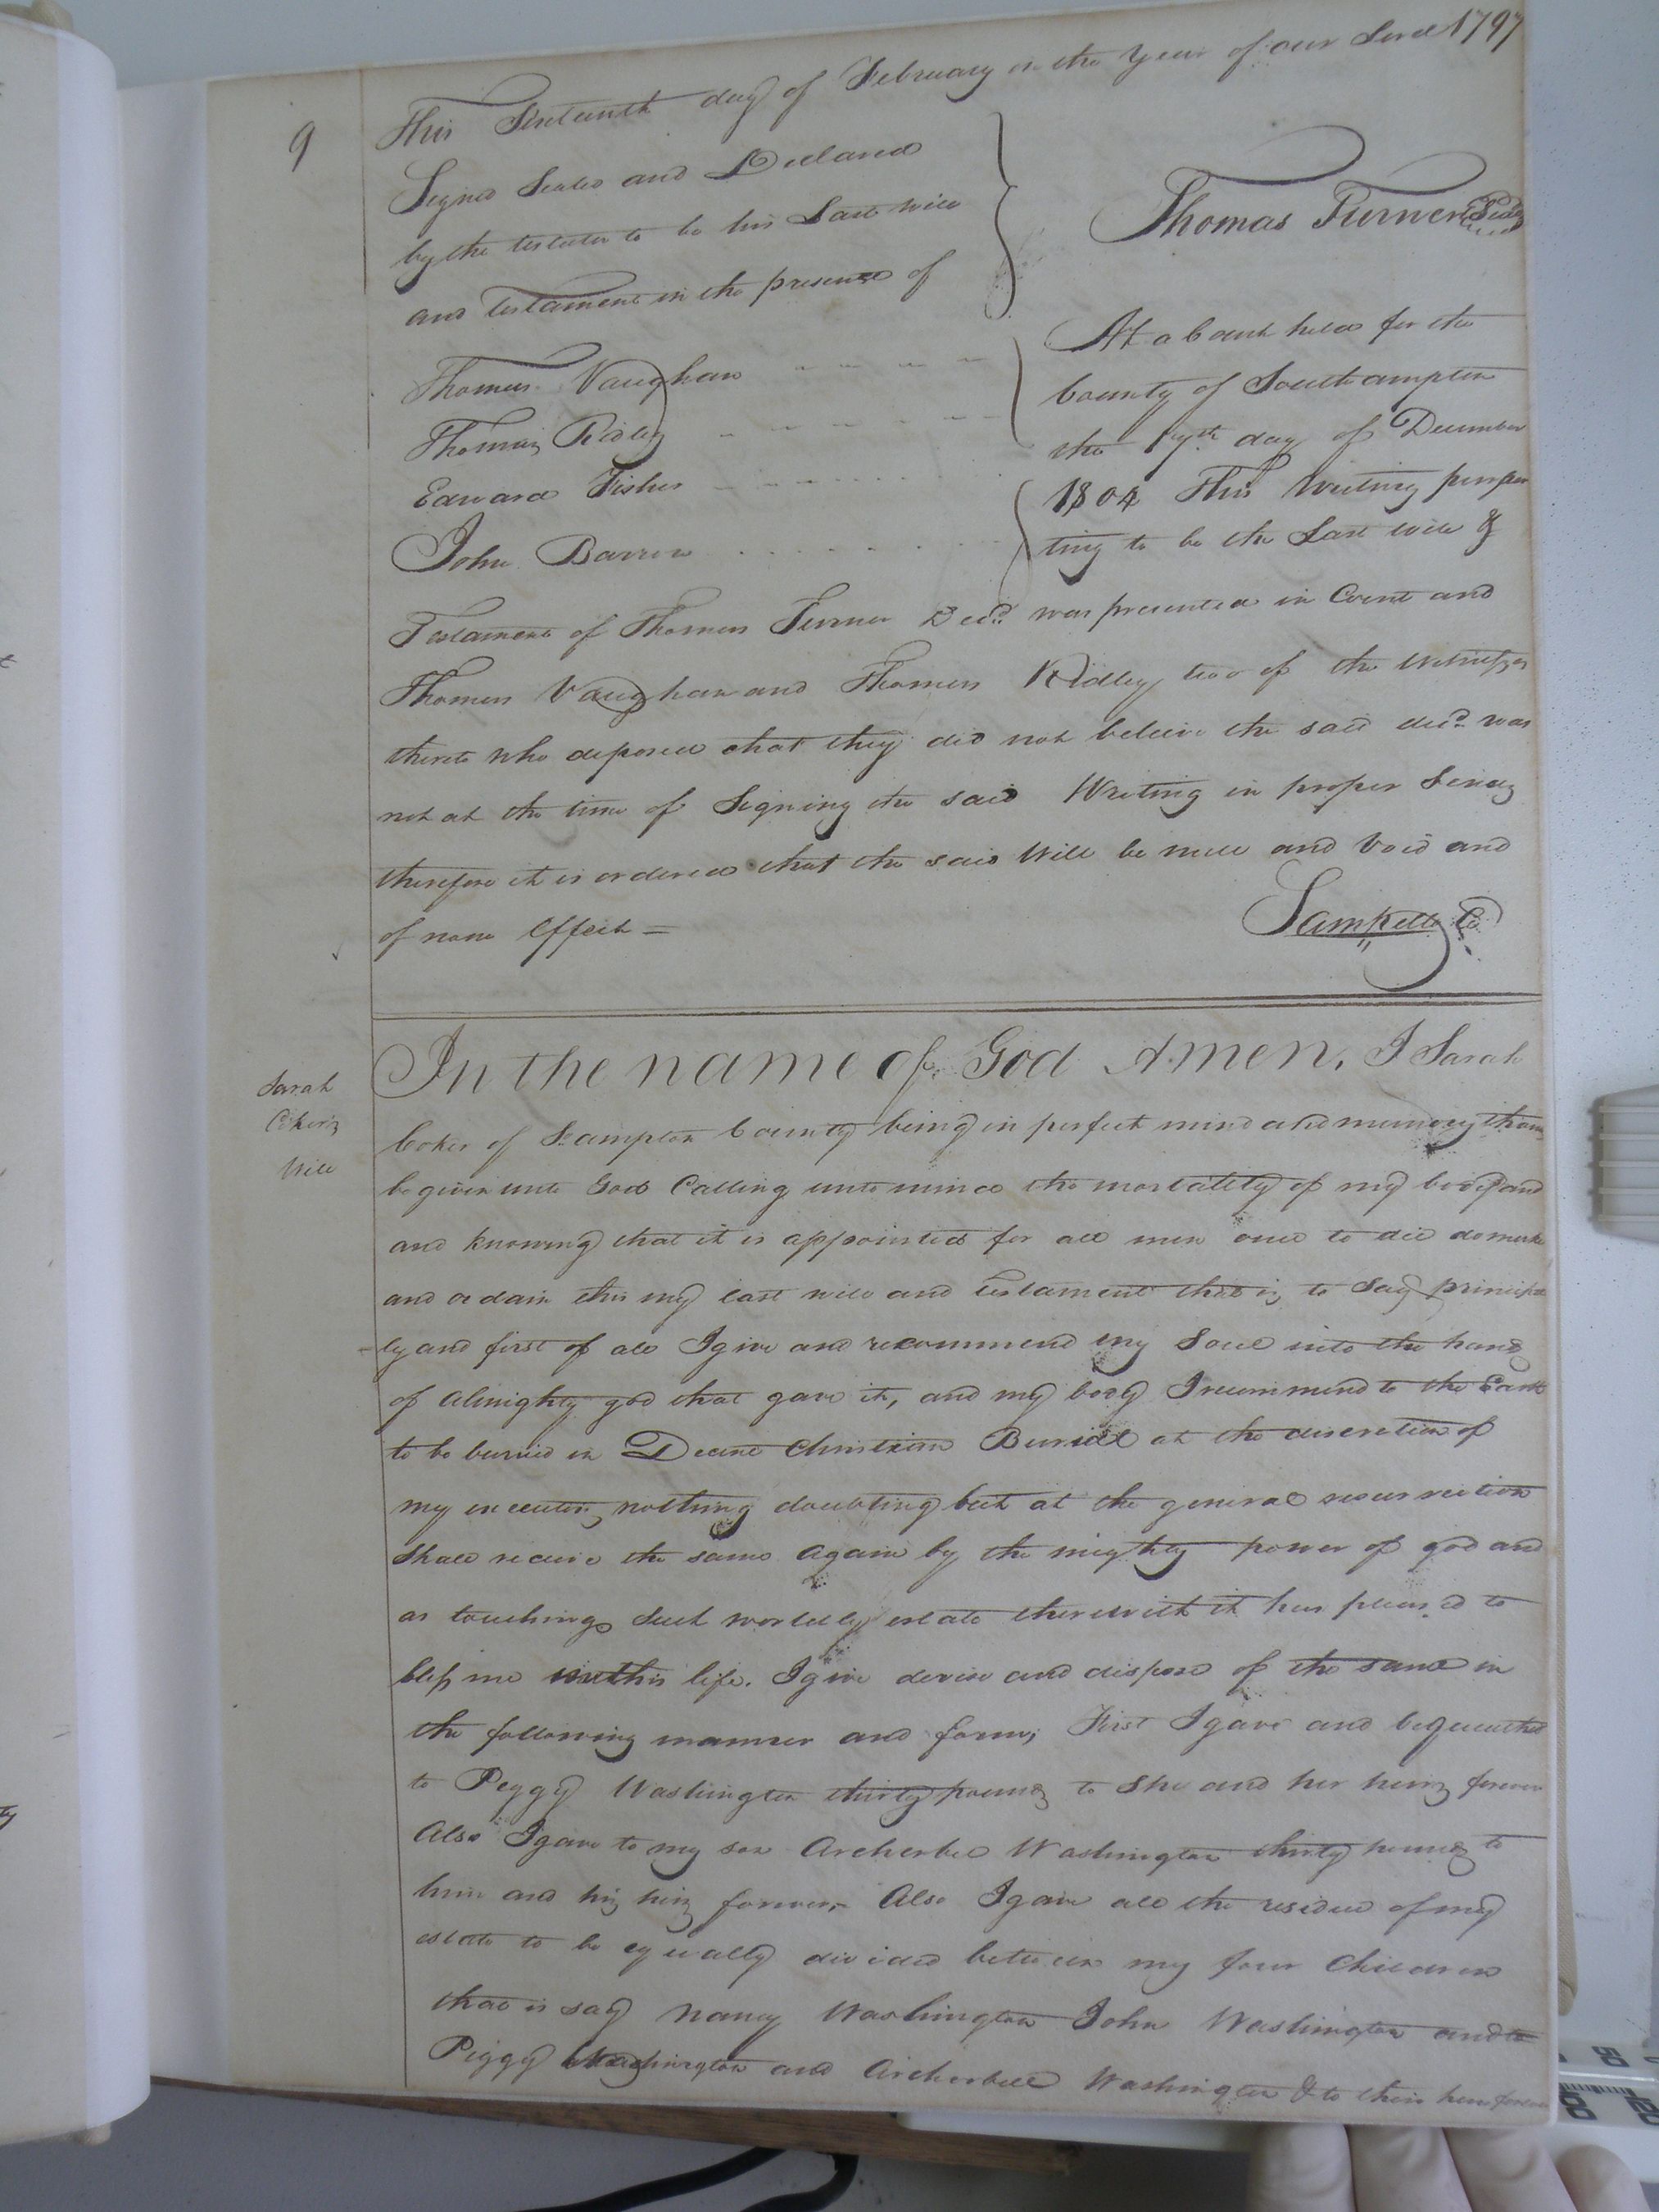 9
This Sixteenth day of February in the Year of our Lord 1797
Signed Sealed and Declared
by the testator to be his Last will
and testament in the presence of
Thomas Turner Seal
Thomas Vaughan
Thomas Ridley
Edward Fisher
John Barrow
At a Court held for the
County of Southampton
the 17th day of December
1804 This Writing purpor
ting to be the Last will &
Testament of Thomas Turner Decd. was presented in Court and
Thomas Vaughan and Thomas Ridley two of the Witnesses
thereto who deposed that they did not beleive the said decd. was
not at the time of Signing the said Writing in proper Senses
therefore it is ordered that the said Will be null and Void and
of none Effect =
Sam Kello CC
Sarah
Cokers
Will
In the name of God Amen, I Sarah
Coker of S.ampton County being in perfect mind and memory thanks
be given unto God Calling unto mind the mortality of my body and
and knowing that it is appointed for all men once to die do make
and ordain this my last will and testament that is to Say principa
ly and first of all I give and recommend my Soul into the hands
of Almighty god that gave it, and my body I recommend to the Earth
to be buried in Decent Christian Burial at the discretion of
my executors nothing doubting but at the general resurrection
Shall receive the same again by the mighty power of god and
as touching Such worldly estate therewith it has pleased to
bless me in this life. I give devise and dispose of the same in
the following manner and form; First I gave and bequeathed
to Peggy Washington thirty pounds to She and her heirs forever
Also I gave to my son Archerbel Washington thirty pounds to
him and his heirs forever, Also I gave all the residue of my
estate to be equally divided between my four Children
that is say Nancy Washington John Washington and to
Peggy Washington and Archerbell Washington & to their heirs forever